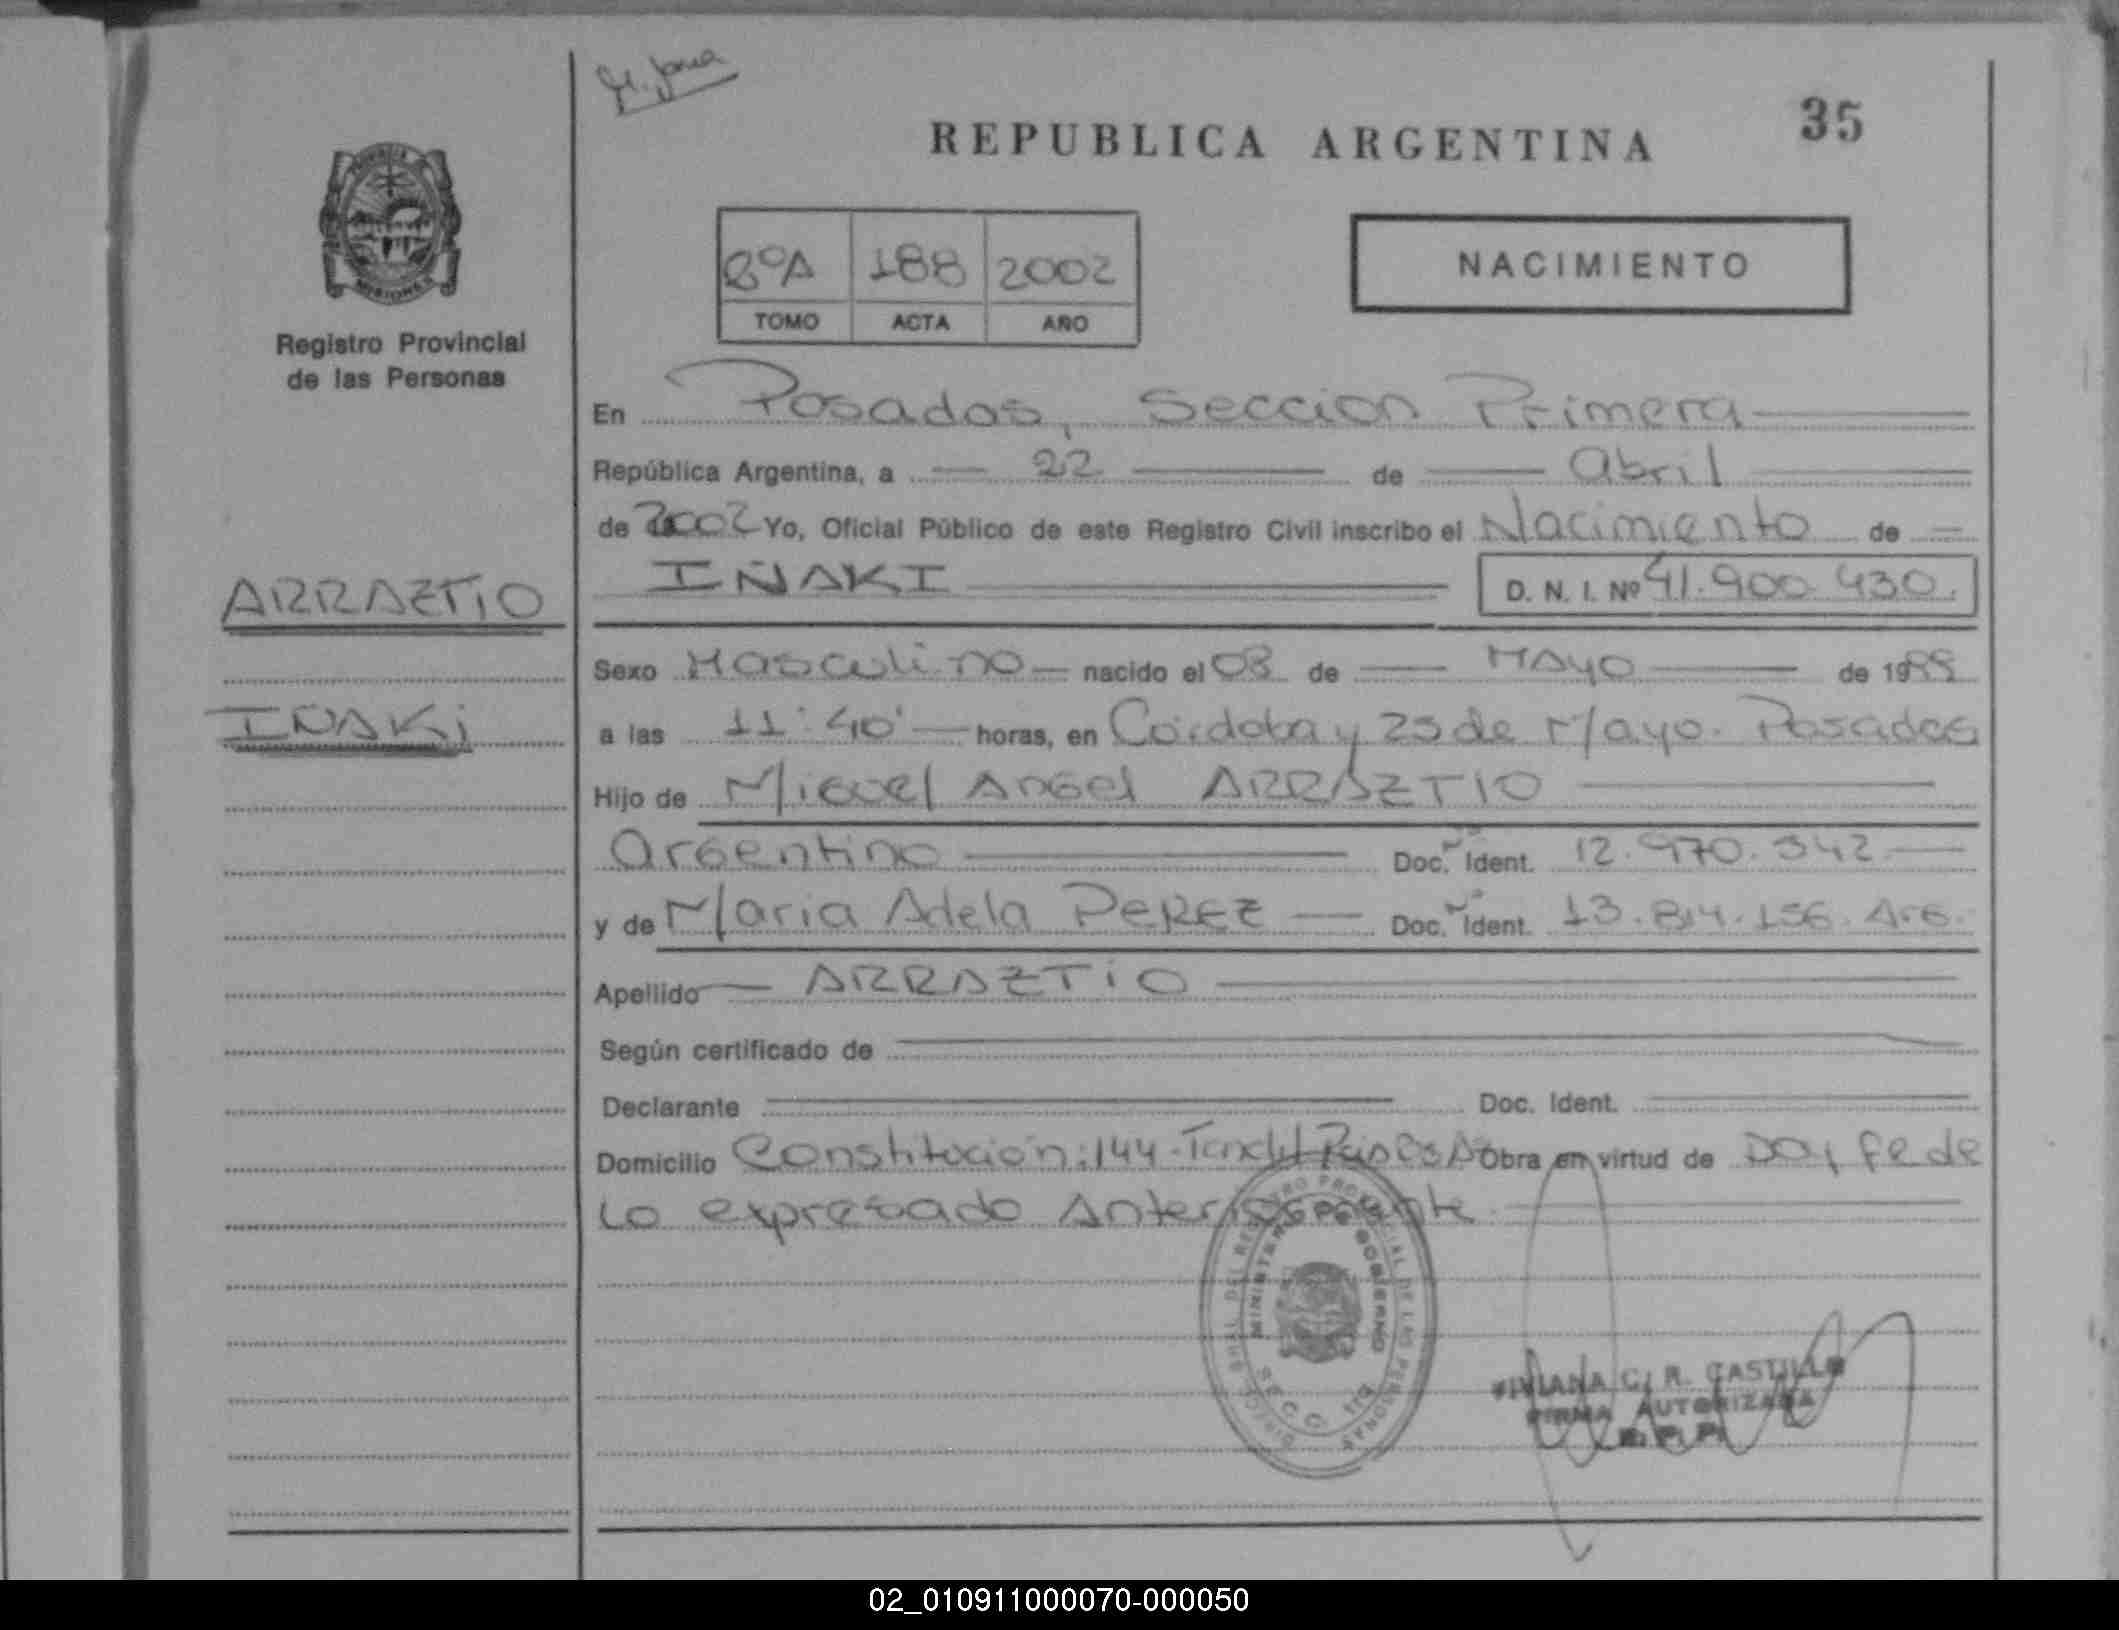 35
REPUBLICA ARGENTINA
MISIONES
Registro Provincial
de las Personas
8ºA 188 2002
TOMO ACTA AÑO
NACIMIENTO
En Posadas, Seccion Primera
República Argentina, a 22 de Abril
de 2002 Yo, Oficial Público de este Registro Civil inscribo el Nacimiento de
IÑAKI D. N. I. Nº 41.900.430.
ARRAZTIO
IÑAKi
Sexo Masculino nacido el 08 de MAyo de 1999
a las 11:40' horas, en Córdoba y 25 de Mayo. Posadas
Hijo de Miguel Angel ARRAZTIO
Argentino Doc. Ident. 12.970.342
y de Maria Adela PEREZ Doc. Ident. 13.814.156. Arg.
Apellido ARRAZTiO
Según certificado de
Declarante Doc. Ident.
Domicilio Constitución: 144. Tandil Obra en virtud de Doy fe de
Lo expresado Anteriormente
DIRECC. GRAL. DEL REGISTRO PROVINCIAL DE LAS PERSONAS
MINISTERIO DE GOBIERNO
VIVIANA C. R. CASTILLO
FIRMA AUTORIZADA
R. P. P.
02_010911000070-000050